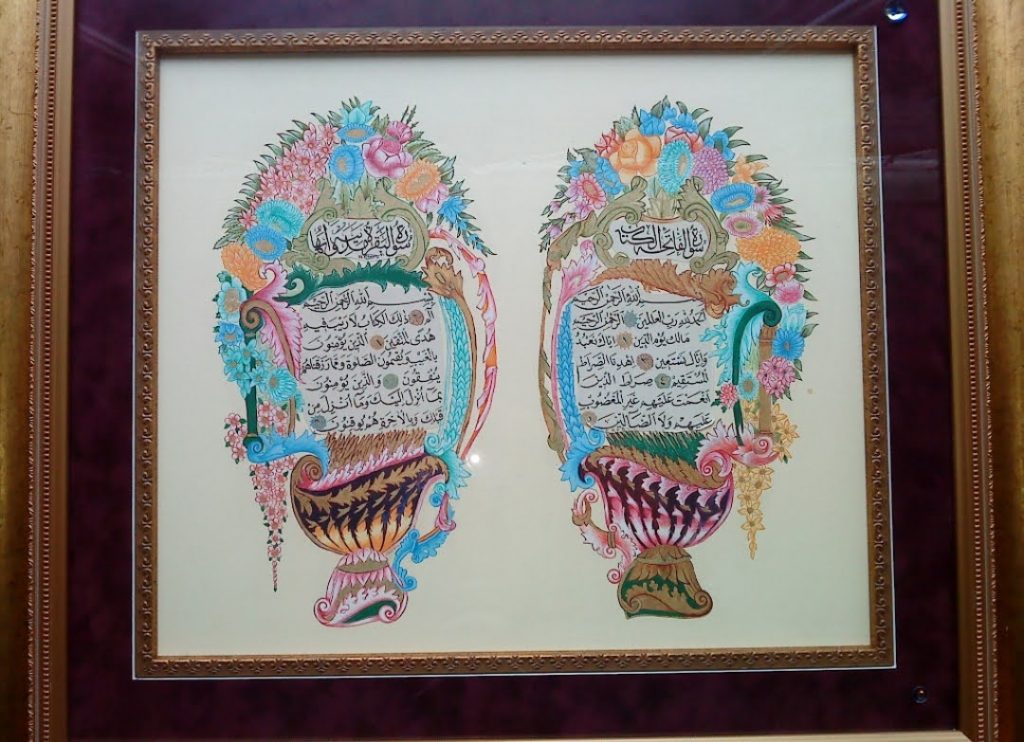 سورة الفاتحة المكية
بسم الله الرحمن الرحيم
الحمد لله رب العالمين الرحمن الرحيم
مالك يوم الدين اياك نعبد
واياك نستعين اهدنا الصراط
المستقيم صراط الذين
انعمت عليهم غير المغضوب
عليهم ولا الضالين
سورة البقرة
بسم الله الرحمن الرحيم
الم ذلك الكتاب لا ريب فيه
هدى للمتقين الذين يؤمنون
بالغيب ويقيمون الصلوة ومما رزقناهم
ينفقون والذين يؤمنون
بما انزل اليك وما انزل من
قبلك وبالاخرة هم يوقنون